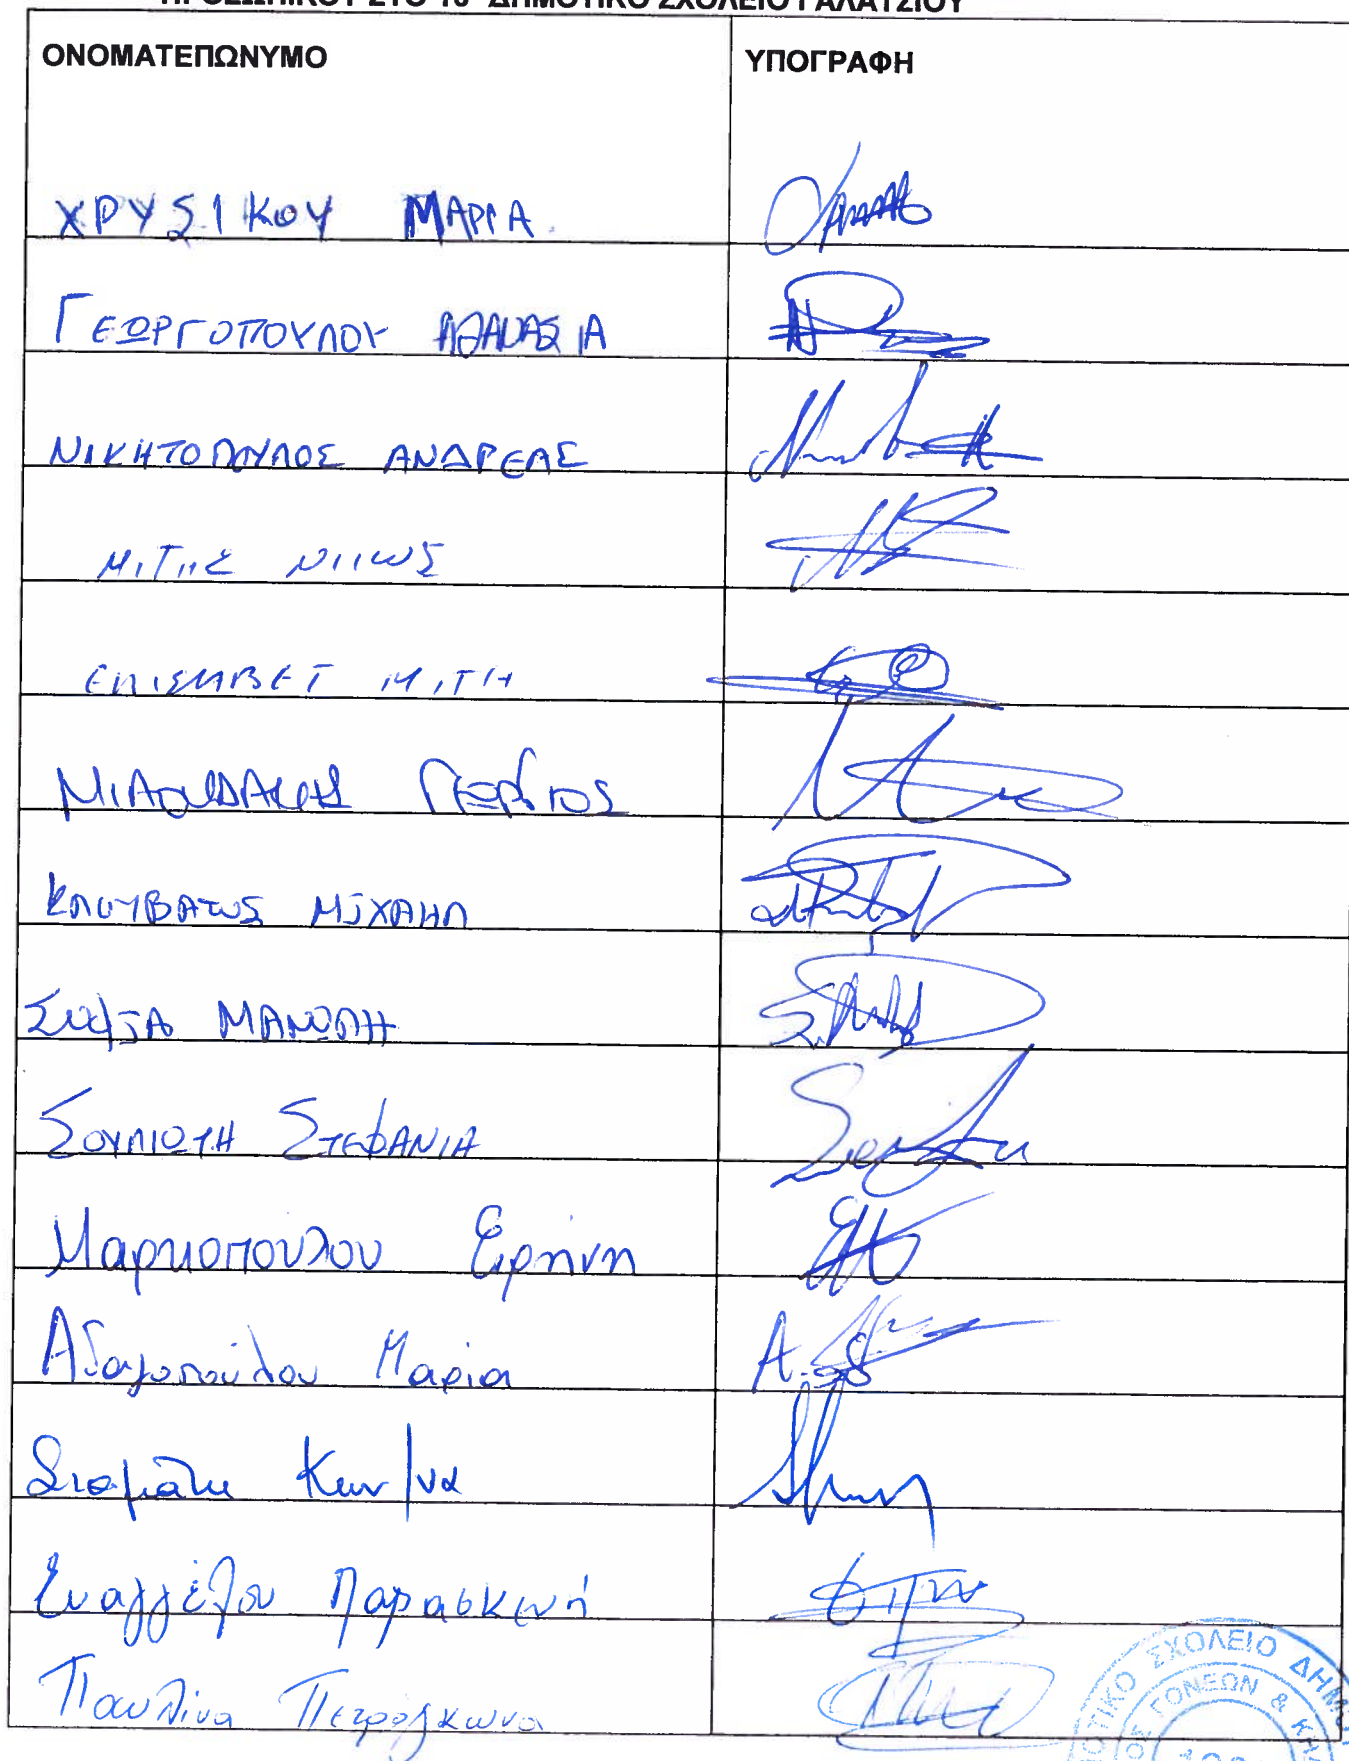 ΠΡΟΣΩΠΙΚΟΥ ΣΤΟ 10º ΔΗΜΟΤΙΚΟ ΣΧΟΛΕΙΟ ΓΑΛΑΤΣΙΟΥ
ΟΝΟΜΑΤΕΠΩΝΥΜΟ ΥΠΟΓΡΑΦΗ
ΧΡΥΣΙΚΟΥ ΜΑΡΙΑ
ΓΕΩΡΓΟΠΟΥΛΟΥ ΑΘΑΝΑΣΙΑ
ΝΙΚΗΤΟΠΟΥΛΟΣ ΑΝΔΡΕΑΣ
ΜΙΤΗΣ ΝΙΚΟΣ
ΕΛΙΣΑΒΕΤ ΜΙΤΗ
ΓΕΩΡΓΙΟΣ
ΚΛΟΥΒΑΤΟΣ ΜΙΧΑΗΛ
ΣΟΦΙΑ ΜΑΝΩΛΗ
ΣΟΥΛΙΩΤΗ ΣΤΕΦΑΝΙΑ
Μαρκοπούλου Ειρήνη
Αδαμοπούλου Μαρία
Σταμάτη Κων/να
Ευαγγέλου Παρασκευή
Παυλίνα
ΣΧΟΛΕΙΟ
ΓΟΝΕΩΝ &